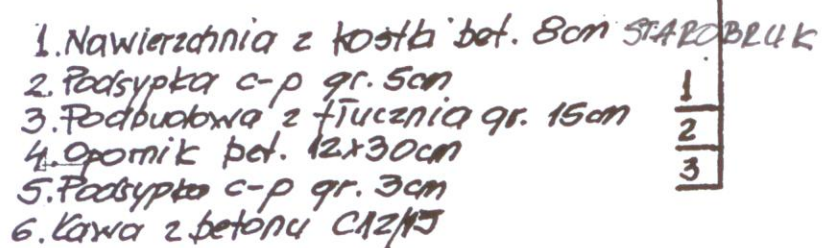 1. Nawierzchnia z kostki bet. 8cm STAROBRUK
2. Podsypka c-p gr. 5cm
3. Podbudowa z tłucznia gr. 15cm
4. Opornik bet. 12x30cm
5. Podsypka c-p gr. 3cm
6. Ława z betonu C12/15
1
2
3